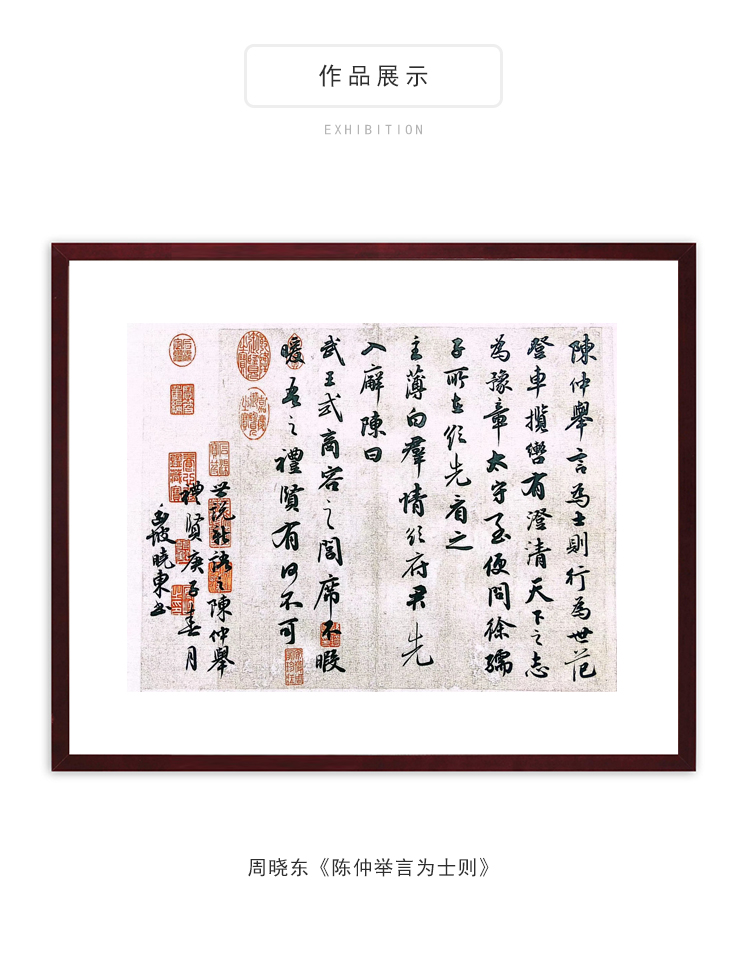 作品展示
EXHIBITION
陳仲舉言為士則行為世范
登車攬轡有澄清天下之志
為豫章太守至便問徐孺
子所在欲先看之
主薄白群情欲府君先
入廨陳曰
武王式商容之閭席不暇
暖吾之禮賢有何不可
世說新語之陳仲舉
禮賢庚子春月
曉東書
周晓东《陈仲举言为士则》